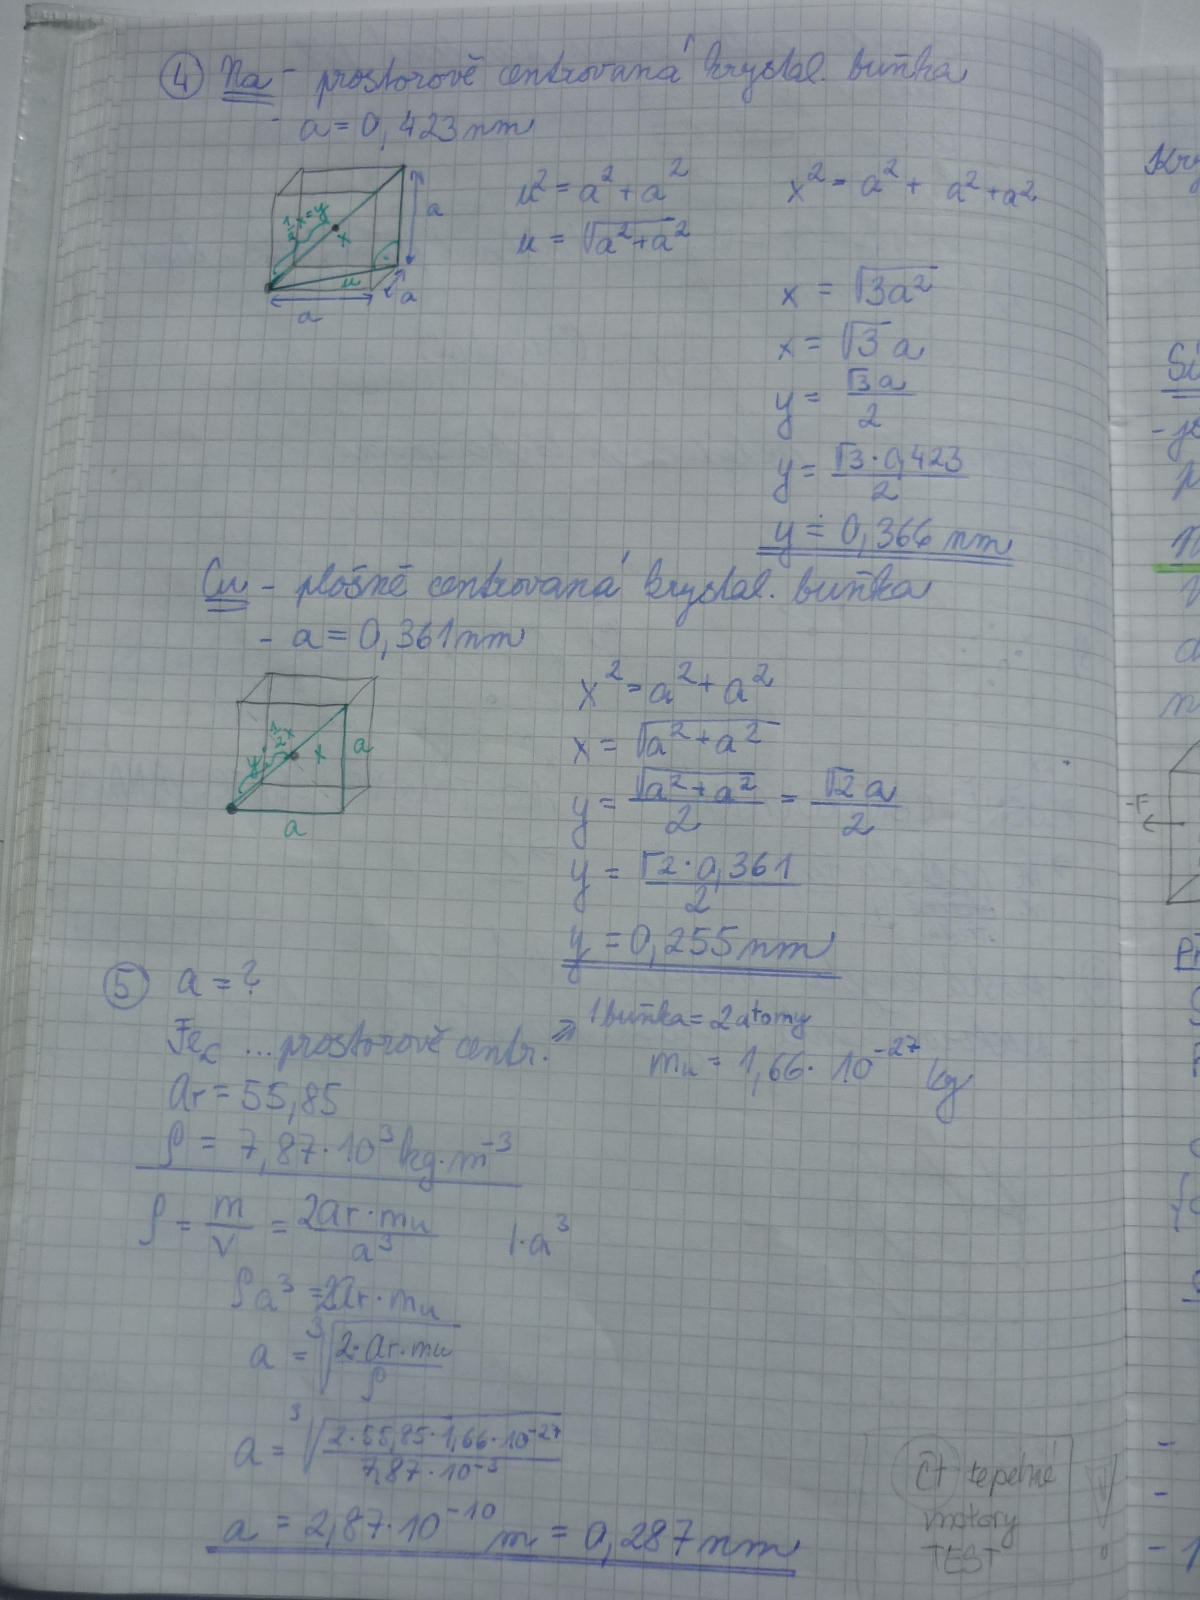 ④ Na - prostorově centrovaná krystal. buňka
- a = 0,423 nm
u² = a² + a²
u = √(a² + a²)
x² = a² + a² + a²
x = √(3a²)
x = √3 a
y = √3 a / 2
y = √3 · 0,423 / 2
y ≐ 0,366 nm
½x = y
x
a
u
a
a
Cu - plošně centrovaná krystal. buňka
- a = 0,361 nm
x² = a² + a²
x = √(a² + a²)
y = √(a² + a²) / 2 = √2 a / 2
y = √2 · 0,361 / 2
y = 0,255 nm
½x
y
x
a
a
⑤ a = ?
Fe ... prostorově centr. ⇒ 1 buňka = 2 atomy
mᵤ = 1,66 · 10⁻²⁷ kg
Ar = 55,85
ρ = 7,87 · 10³ kg · m⁻³
ρ = m / V = 2Ar · mᵤ / a³ | · a³
ρa³ = 2Ar · mᵤ
a = ³√(2 · Ar · mᵤ / ρ)
a = ³√(2 · 55,85 · 1,66 · 10⁻²⁷ / 7,87 · 10⁻³)
a = 2,87 · 10⁻¹⁰ m = 0,287 nm
čt tepelné
motory
TEST
-F